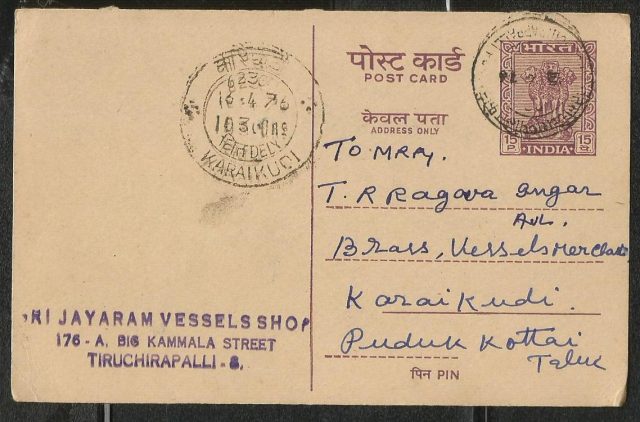 पोस्ट कार्ड
POST CARD
केवल पता
ADDRESS ONLY
भारत
15
15
INDIA
16.4.76
DELY.
KARAIKUDI
To M.R.Ry.
T. R Ragava Iyengar
Avl.
Brass, Vessels Merchant
Karaikudi.
Pudukkottai
Taluk
पिन PIN
RI JAYARAM VESSELS SHOP
176 - A, BIG KAMMALA STREET
TIRUCHIRAPALLI - 8.